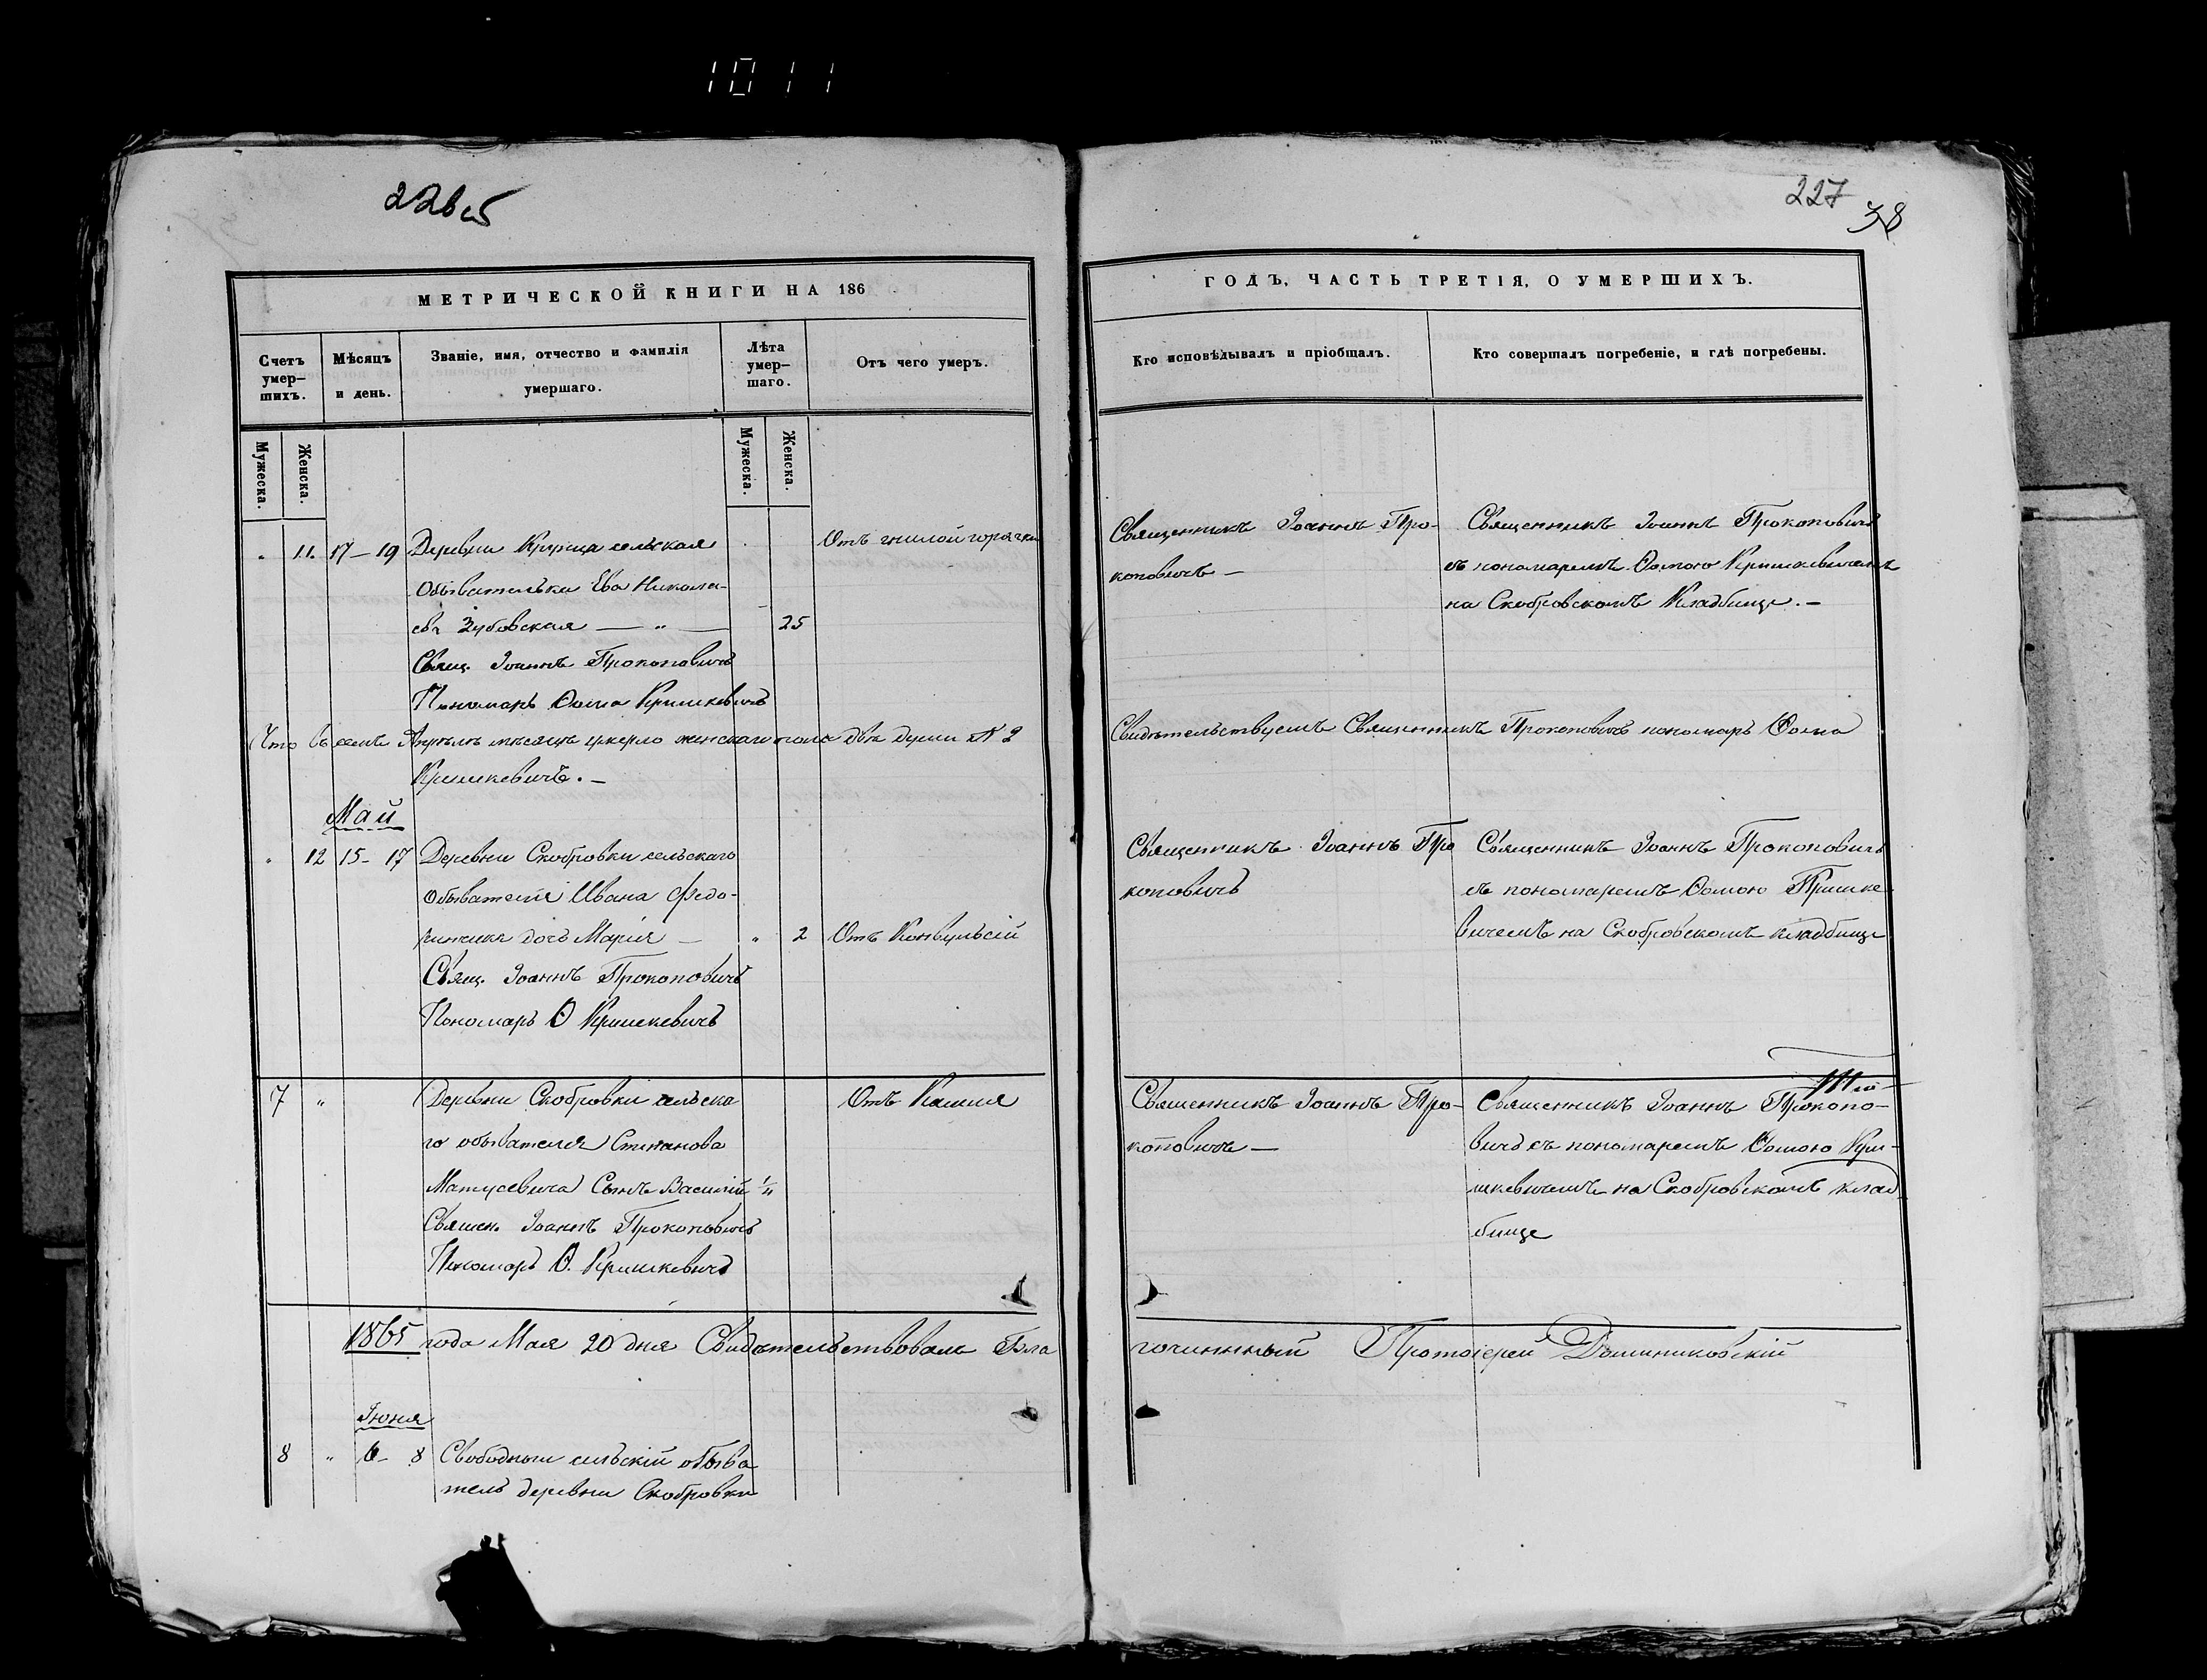 1011
226 об
227
38
МЕТРИЧЕСКОЙ КНИГИ НА 186
ГОДЪ, ЧАСТЬ ТРЕТІЯ, О УМЕРШИХЪ.
Счетъ умер-шихъ.
Мѣсяцъ и день.
Званіе, имя, отчество и фамилія умершаго.
Лѣта умер-шаго.
Отъ чего умеръ.
Кто исповѣдывалъ и пріобщалъ.
Кто совершалъ погребеніе, и гдѣ погребены.
Мужеска.
Женска.
Мужеска.
Женска.
" 11. 17–19 Деревни сельская Отъ гнилой горячки
Обывателька Ева Никола-
ева Зубовская — " — 25
Свящ. Іоаннъ Прокоповичъ
Пономарь Ѳома Кришкевичъ
Священникъ Іоаннъ Про-
коповичъ —
Священникъ Іоаннъ Прокоповичъ
съ пономаремъ Ѳомою Кришкевичемъ
на Скобровскомъ Кладбище. —
Что въ семъ Апрѣлѣ мѣсяцѣ умерло женскаго пола двѣ души № 2
Свидѣтельствуемъ Священникъ Прокоповичъ пономарь Ѳома
Кришкевичъ. —
Май
" 12 15– 17 Деревни Скобровки сельскаго
Обывателя Ивана Федо-
дочь Марія — " 2 Отъ Конвульсій
Свящ. Іоаннъ Прокоповичъ
Пономарь Ѳ Кришкевичъ
Священникъ Іоаннъ Про
коповичъ
Священникъ Іоаннъ Прокоповичъ
съ пономаремъ Ѳомою Кришке
вичемъ на Скобровскомъ кладбище
7 " Деревни Скобровки сельска Отъ Кашля
го обывателя Степанова
Матусевича Сынъ Василій
Священ. Іоаннъ Прокоповичъ
Пономарь Ѳ. Кришкевичъ
Священникъ Іоаннъ Про-
коповичъ —
Священникъ Іоаннъ Прокопо-
вичъ съ пономаремъ Ѳомою Кри-
шкевичемъ на Скобровскомъ клад
бище
1865 года Мая 20 дня Свидѣтельствовалъ Бла
гочинный Протоіерей Доминиковскій
Іюня
8 " 6– 8 Свободный сельскій обыва
тель деревни Скобровки